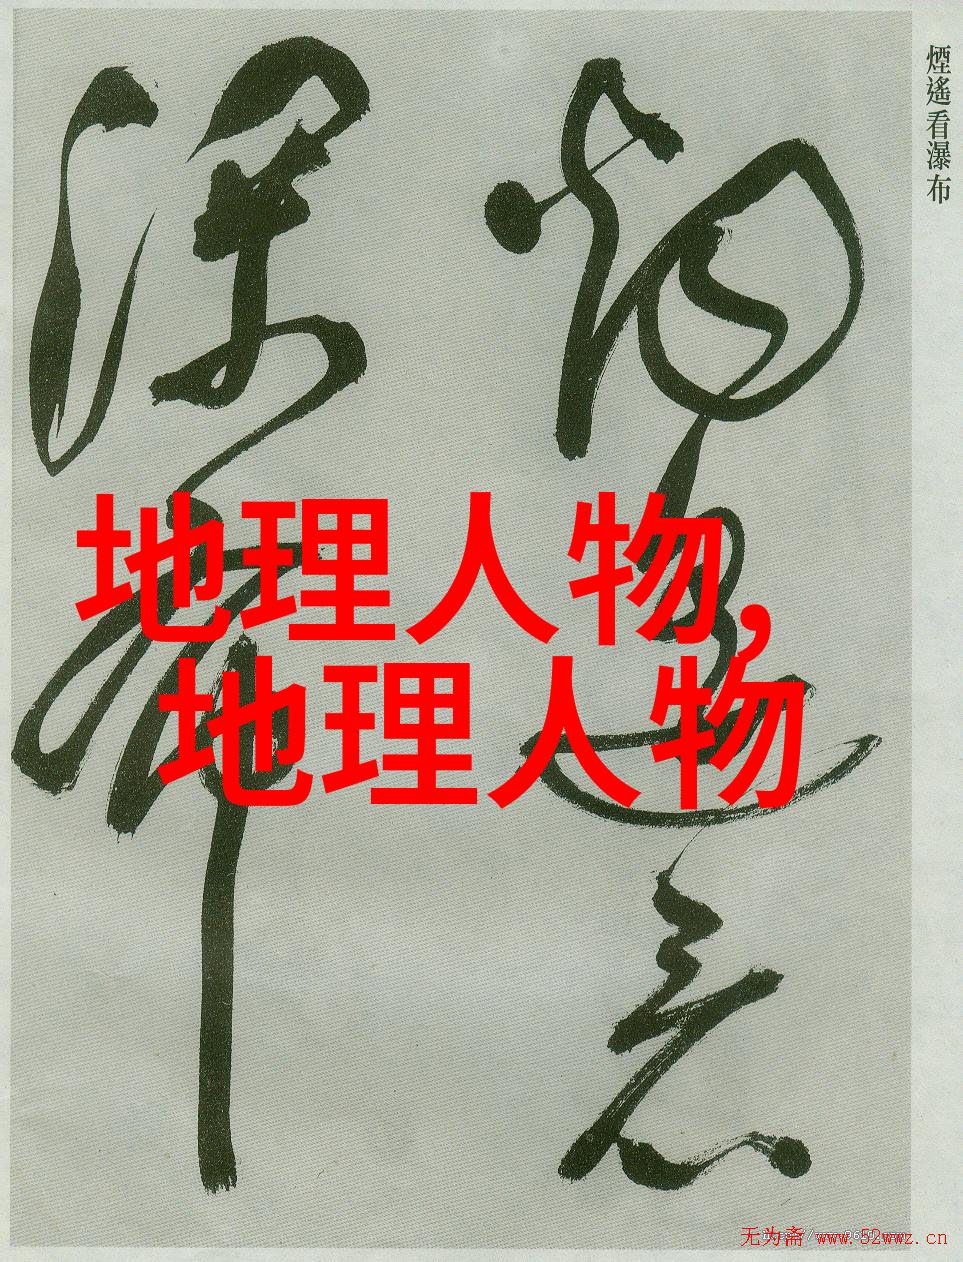 煙遙看瀑布
煙遥看
瀑布
地理人物，
地理人物
无为斋 www.52wwz.cn